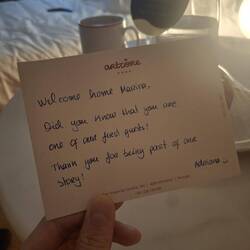 Welcome home Marina,
Did you know that you are
one of our first guests!
Thank you for being part of our
story!